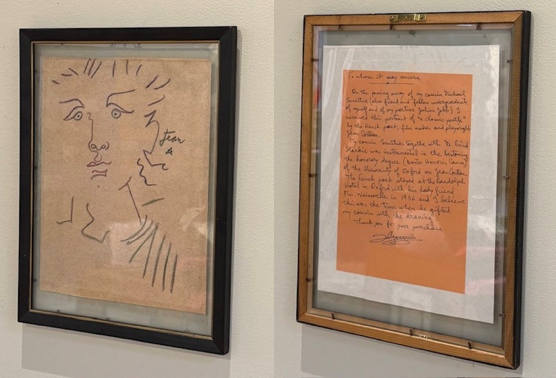 Jean
To whom it may concern
On the passing away of my cousin Michael
(also friend and fellow undergraduate
of myself and of my partner Julian
received this portrait of "a classic youth"
by the French poet, film maker and playwright
Jean Cocteau.
My cousin together with Dr Enid
Starkie was instrumental in the bestowing
the honorary degree (Doctor Honoris Causa)
of the University of Oxford on Jean Cocteau.
The French poet stayed at the Randolph
Hotel in Oxford with his lady friend
Mme. in 1956 and I believe
this was the time when he gifted
my cousin with the drawing.
Thank you for your purchase